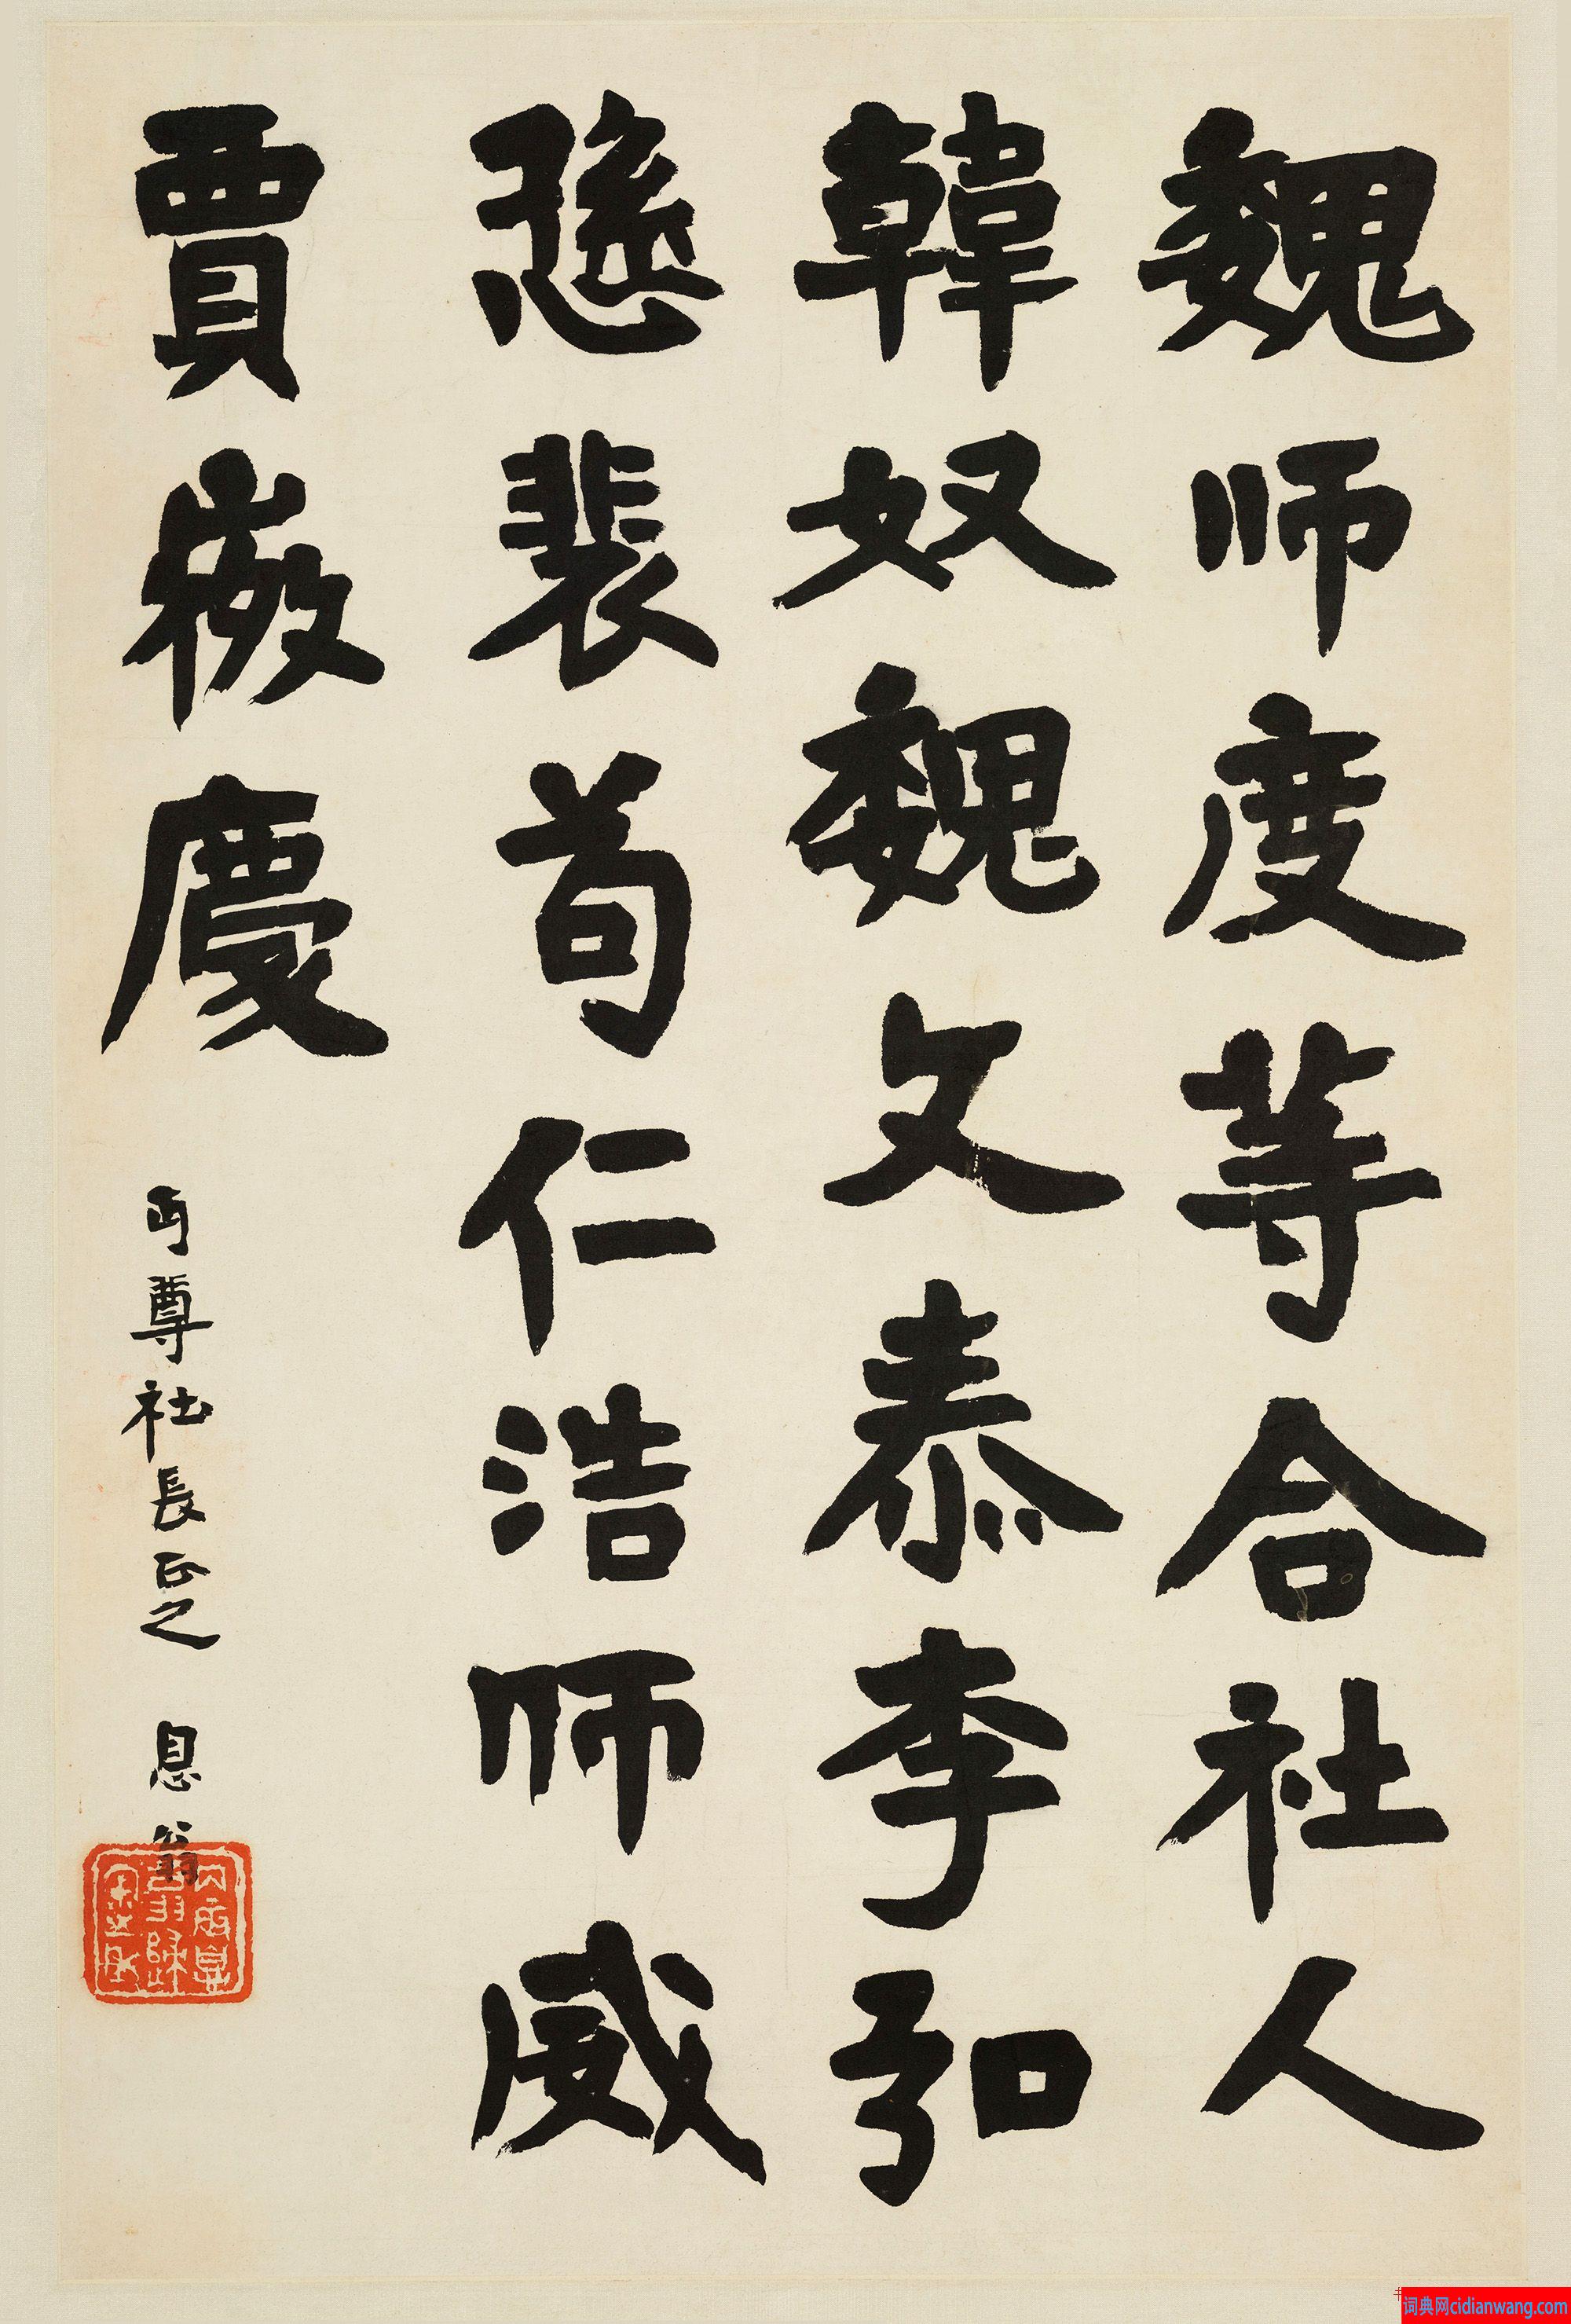 魏师度等合社人
韓奴魏文泰李弘
愻裴苟仁浩师威
賈㣲慶
丏尊社長正之 息翁
词典网cidianwang.com